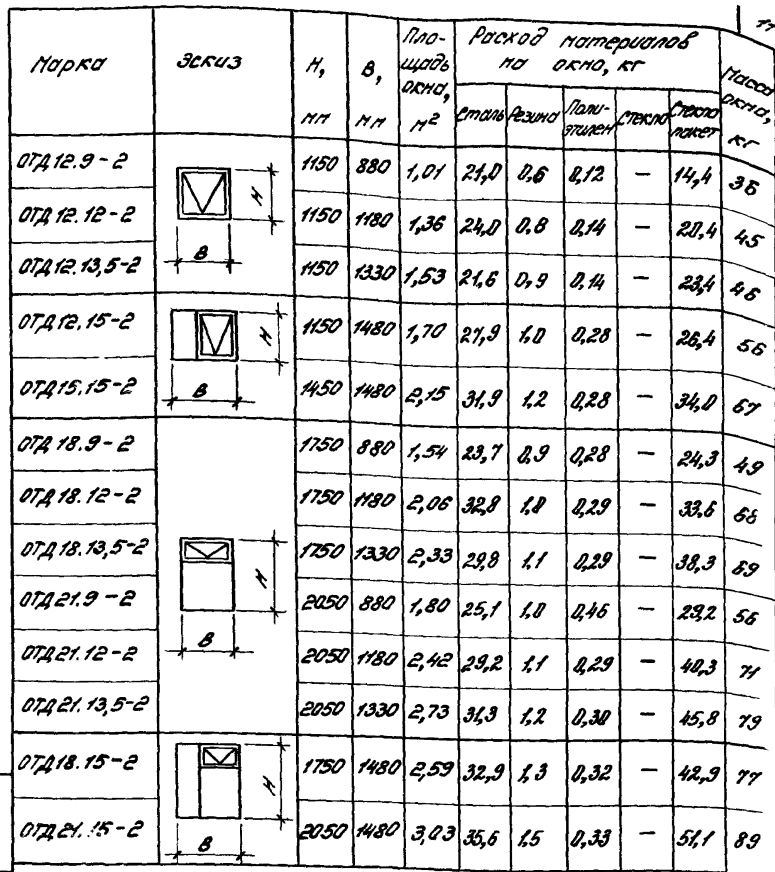 Марка Эскиз H, мм B, мм Площадь окна, м² Расход материалов на окно, кг Масса окна, кг
Сталь Резина Полиэтилен Стекло Стеклопакет
ОТД 12.9-2 1150 880 1,01 21,0 0,6 0,12 — 14,4 36
ОТД 12.12-2 1150 1180 1,36 24,0 0,8 0,14 — 20,4 45
ОТД 12.13,5-2 1150 1330 1,53 21,6 0,9 0,14 — 23,4 46
H
B
ОТД 12.15-2 1150 1480 1,70 27,9 1,0 0,28 — 26,4 56
ОТД 15.15-2 1450 1480 2,15 31,9 1,2 0,28 — 34,0 67
H
B
ОТД 18.9-2 1750 880 1,54 23,7 0,9 0,28 — 24,3 49
ОТД 18.12-2 1750 1180 2,06 32,8 1,0 0,29 — 33,6 68
ОТД 18.13,5-2 1750 1330 2,33 29,8 1,1 0,29 — 38,3 69
ОТД 21.9-2 2050 880 1,80 25,1 1,0 0,46 — 29,2 56
ОТД 21.12-2 2050 1180 2,42 29,2 1,1 0,29 — 40,3 71
ОТД 21.13,5-2 2050 1330 2,73 31,3 1,2 0,30 — 45,8 79
H
B
ОТД 18.15-2 1750 1480 2,59 32,9 1,3 0,32 — 42,9 77
ОТД 21.15-2 2050 1480 3,03 35,6 1,5 0,33 — 51,1 89
H
B